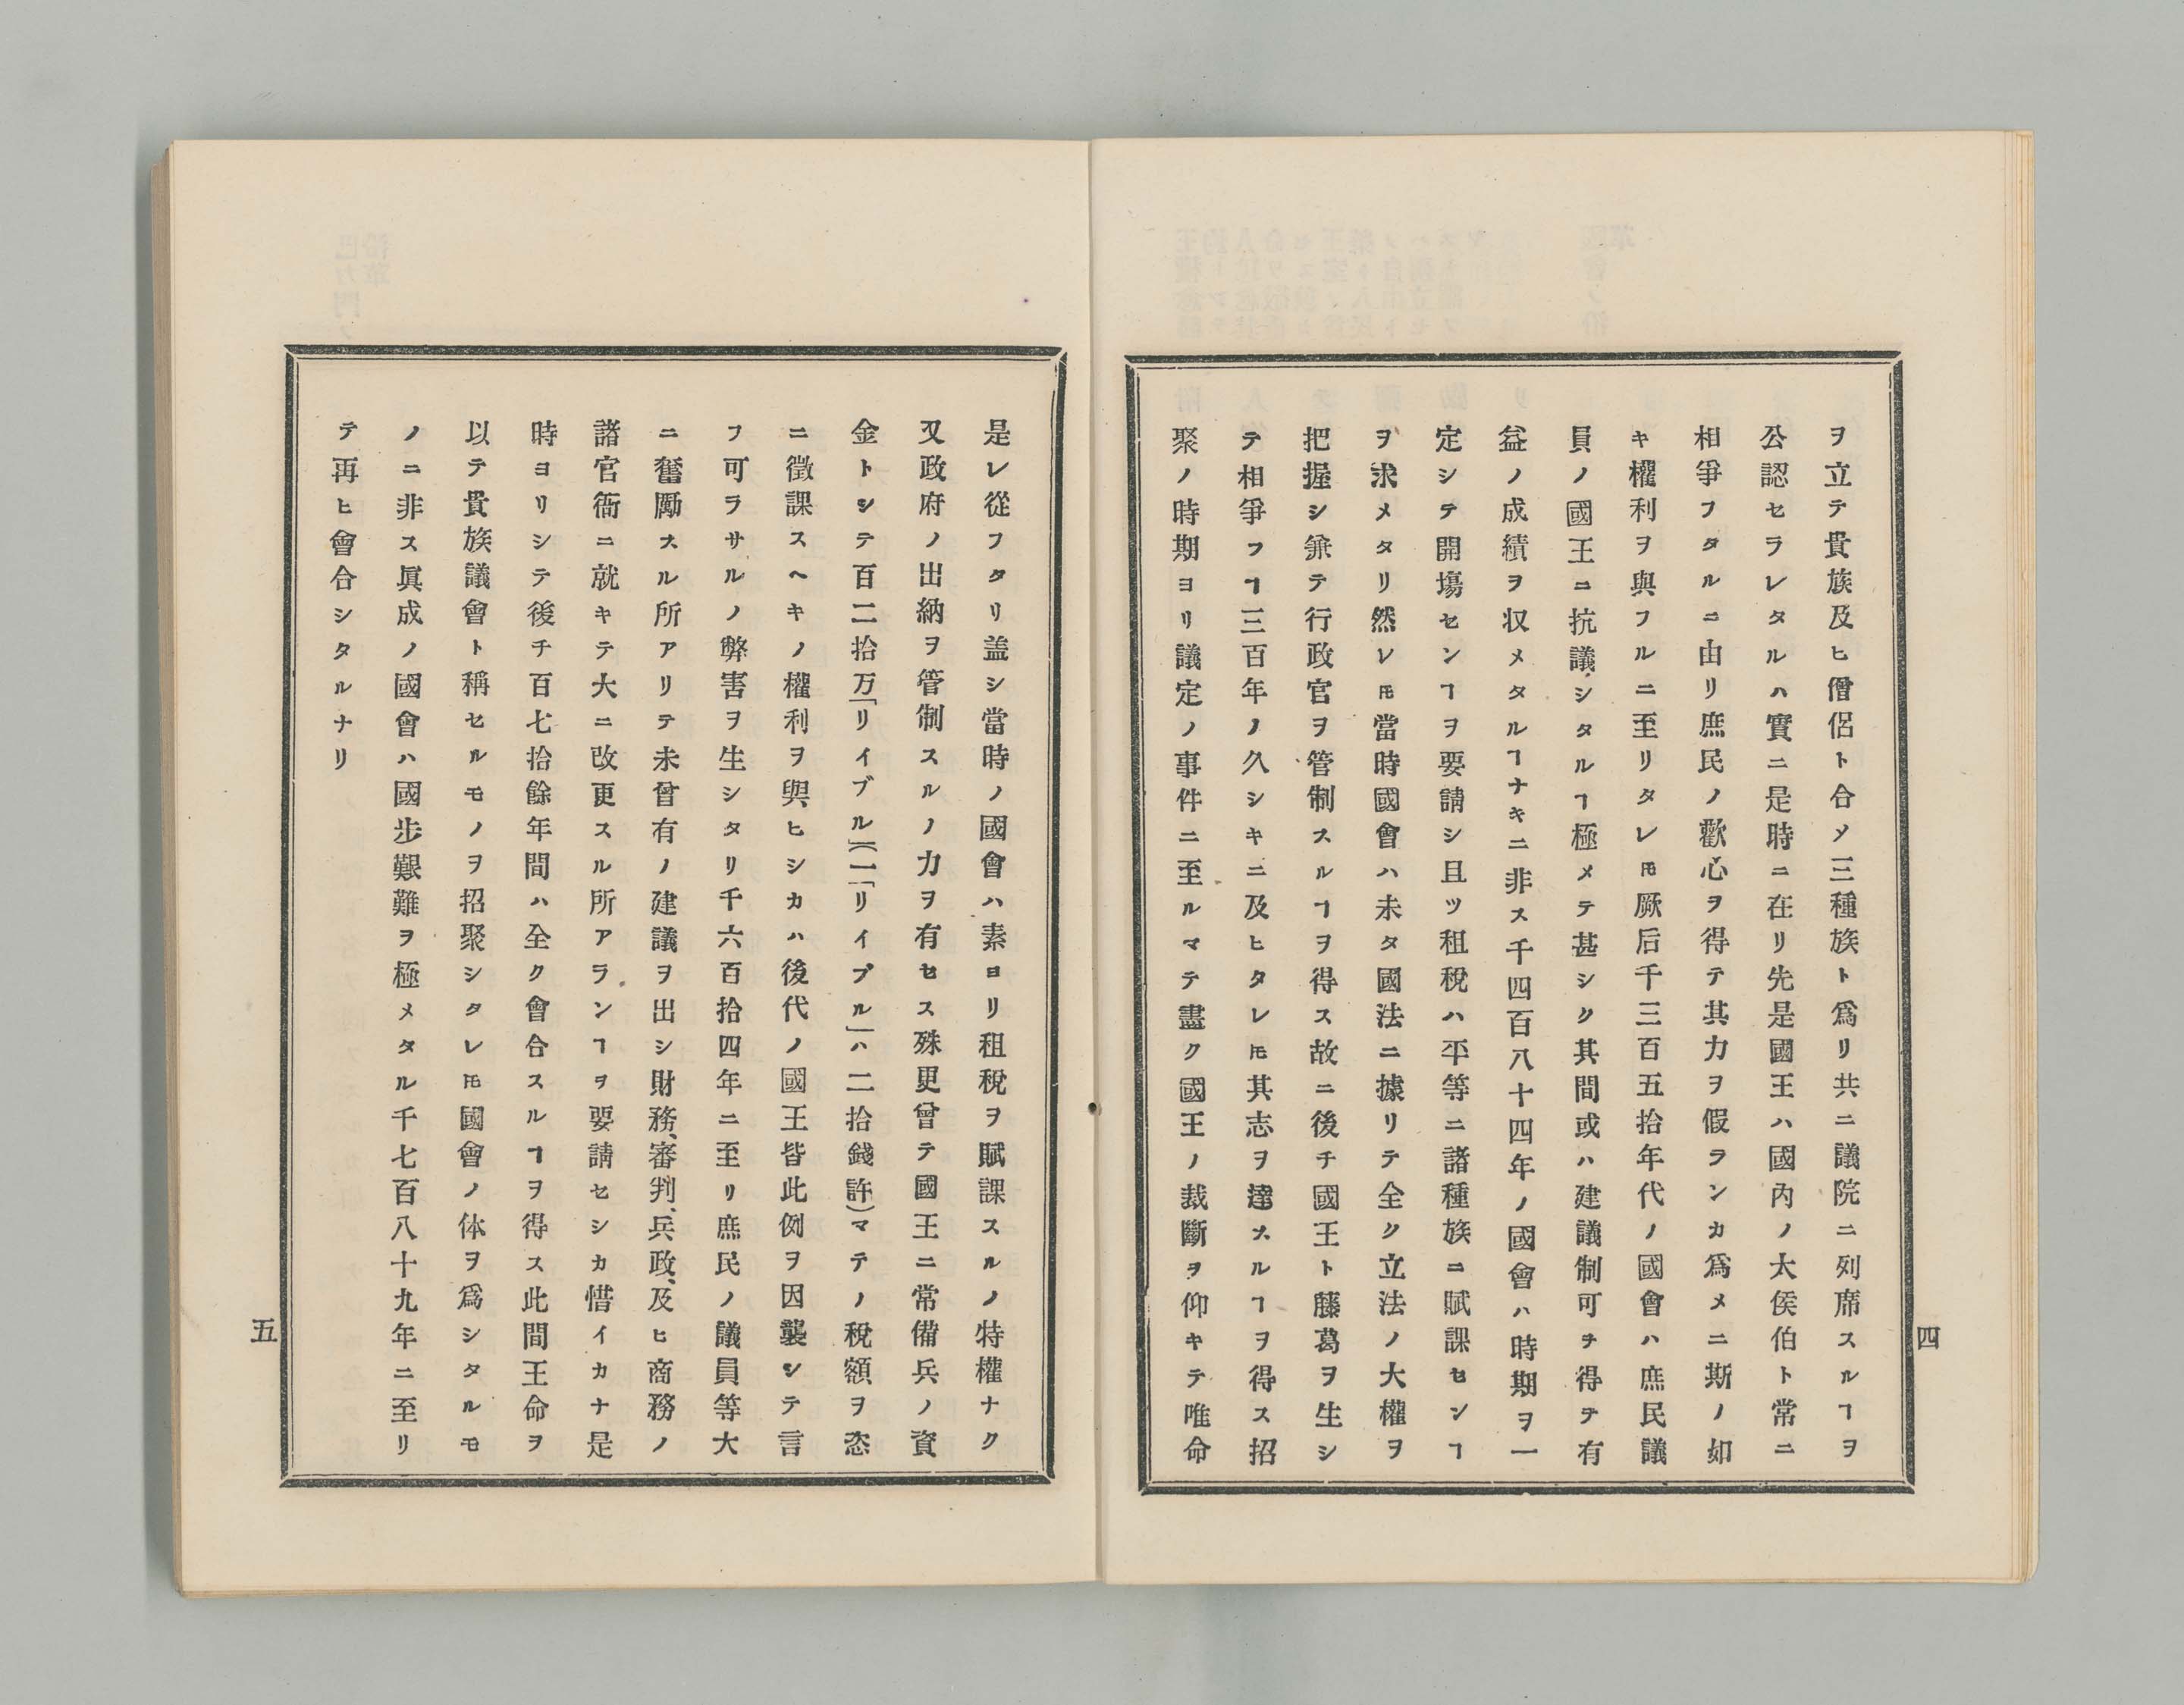 ヲ立テ貴族及ヒ僧侶ト合メ三種族ト爲リ共ニ議院ニ列席スルヿヲ
公認セラレタルハ實ニ是時ニ在リ先是國王ハ國內ノ大侯伯ト常ニ
相爭フタルニ由リ庶民ノ歡心ヲ得テ其力ヲ假ランカ爲メニ斯ノ如
キ權利ヲ與フルニ至リタレ𪜈厥后千三百五拾年代ノ國會ハ庶民議
員ノ國王ニ抗議シタルヿ極メテ甚シク其間或ハ建議制可ヲ得テ有
益ノ成績ヲ収メタルヿナキニ非ス千四百八十四年ノ國會ハ時期ヲ一
定シテ開塲センヿヲ要請シ且ツ租稅ハ平等ニ諸種族ニ賦課センヿ
ヲ求メタリ然レ𪜈當時國會ハ未タ國法ニ據リテ全ク立法ノ大權ヲ
把握シ兼テ行政官ヲ管制スルヿヲ得ス故ニ後チ國王ト藤葛ヲ生シ
テ相爭フヿ三百年ノ久シキニ及ヒタレ𪜈其志ヲ達スルヿヲ得ス招
聚ノ時期ヨリ議定ノ事件ニ至ルマテ盡ク國王ノ裁斷ヲ仰キテ唯命
四
是レ從フタリ盖シ當時ノ國會ハ素ヨリ租稅ヲ賦課スルノ特權ナク
又政府ノ出納ヲ管制スルノ力ヲ有セス殊更曾テ國王ニ常備兵ノ資
金トシテ百二拾万「リイブル」(一「リイブル」ハ二拾錢許)マテノ稅額ヲ恣
ニ徵課スヘキノ權利ヲ與ヒシカハ後代ノ國王皆此例ヲ因襲シテ言
フ可ラサルノ弊害ヲ生シタリ千六百拾四年ニ至リ庶民ノ議員等大
ニ奮勵スル所アリテ未曾有ノ建議ヲ出シ財務、審判、兵政、及ヒ商務ノ
諸官衙ニ就キテ大ニ改更スル所アランヿヲ要請セシカ惜イカナ是
時ヨリシテ後チ百七拾餘年間ハ全ク會合スルヿヲ得ス此間王命ヲ
以テ貴族議會ト稱セルモノヲ招聚シタレ𪜈國會ノ体ヲ爲シタルモ
ノニ非ス眞成ノ國會ハ國步艱難ヲ極メタル千七百八十九年ニ至リ
テ再ヒ會合シタルナリ
五